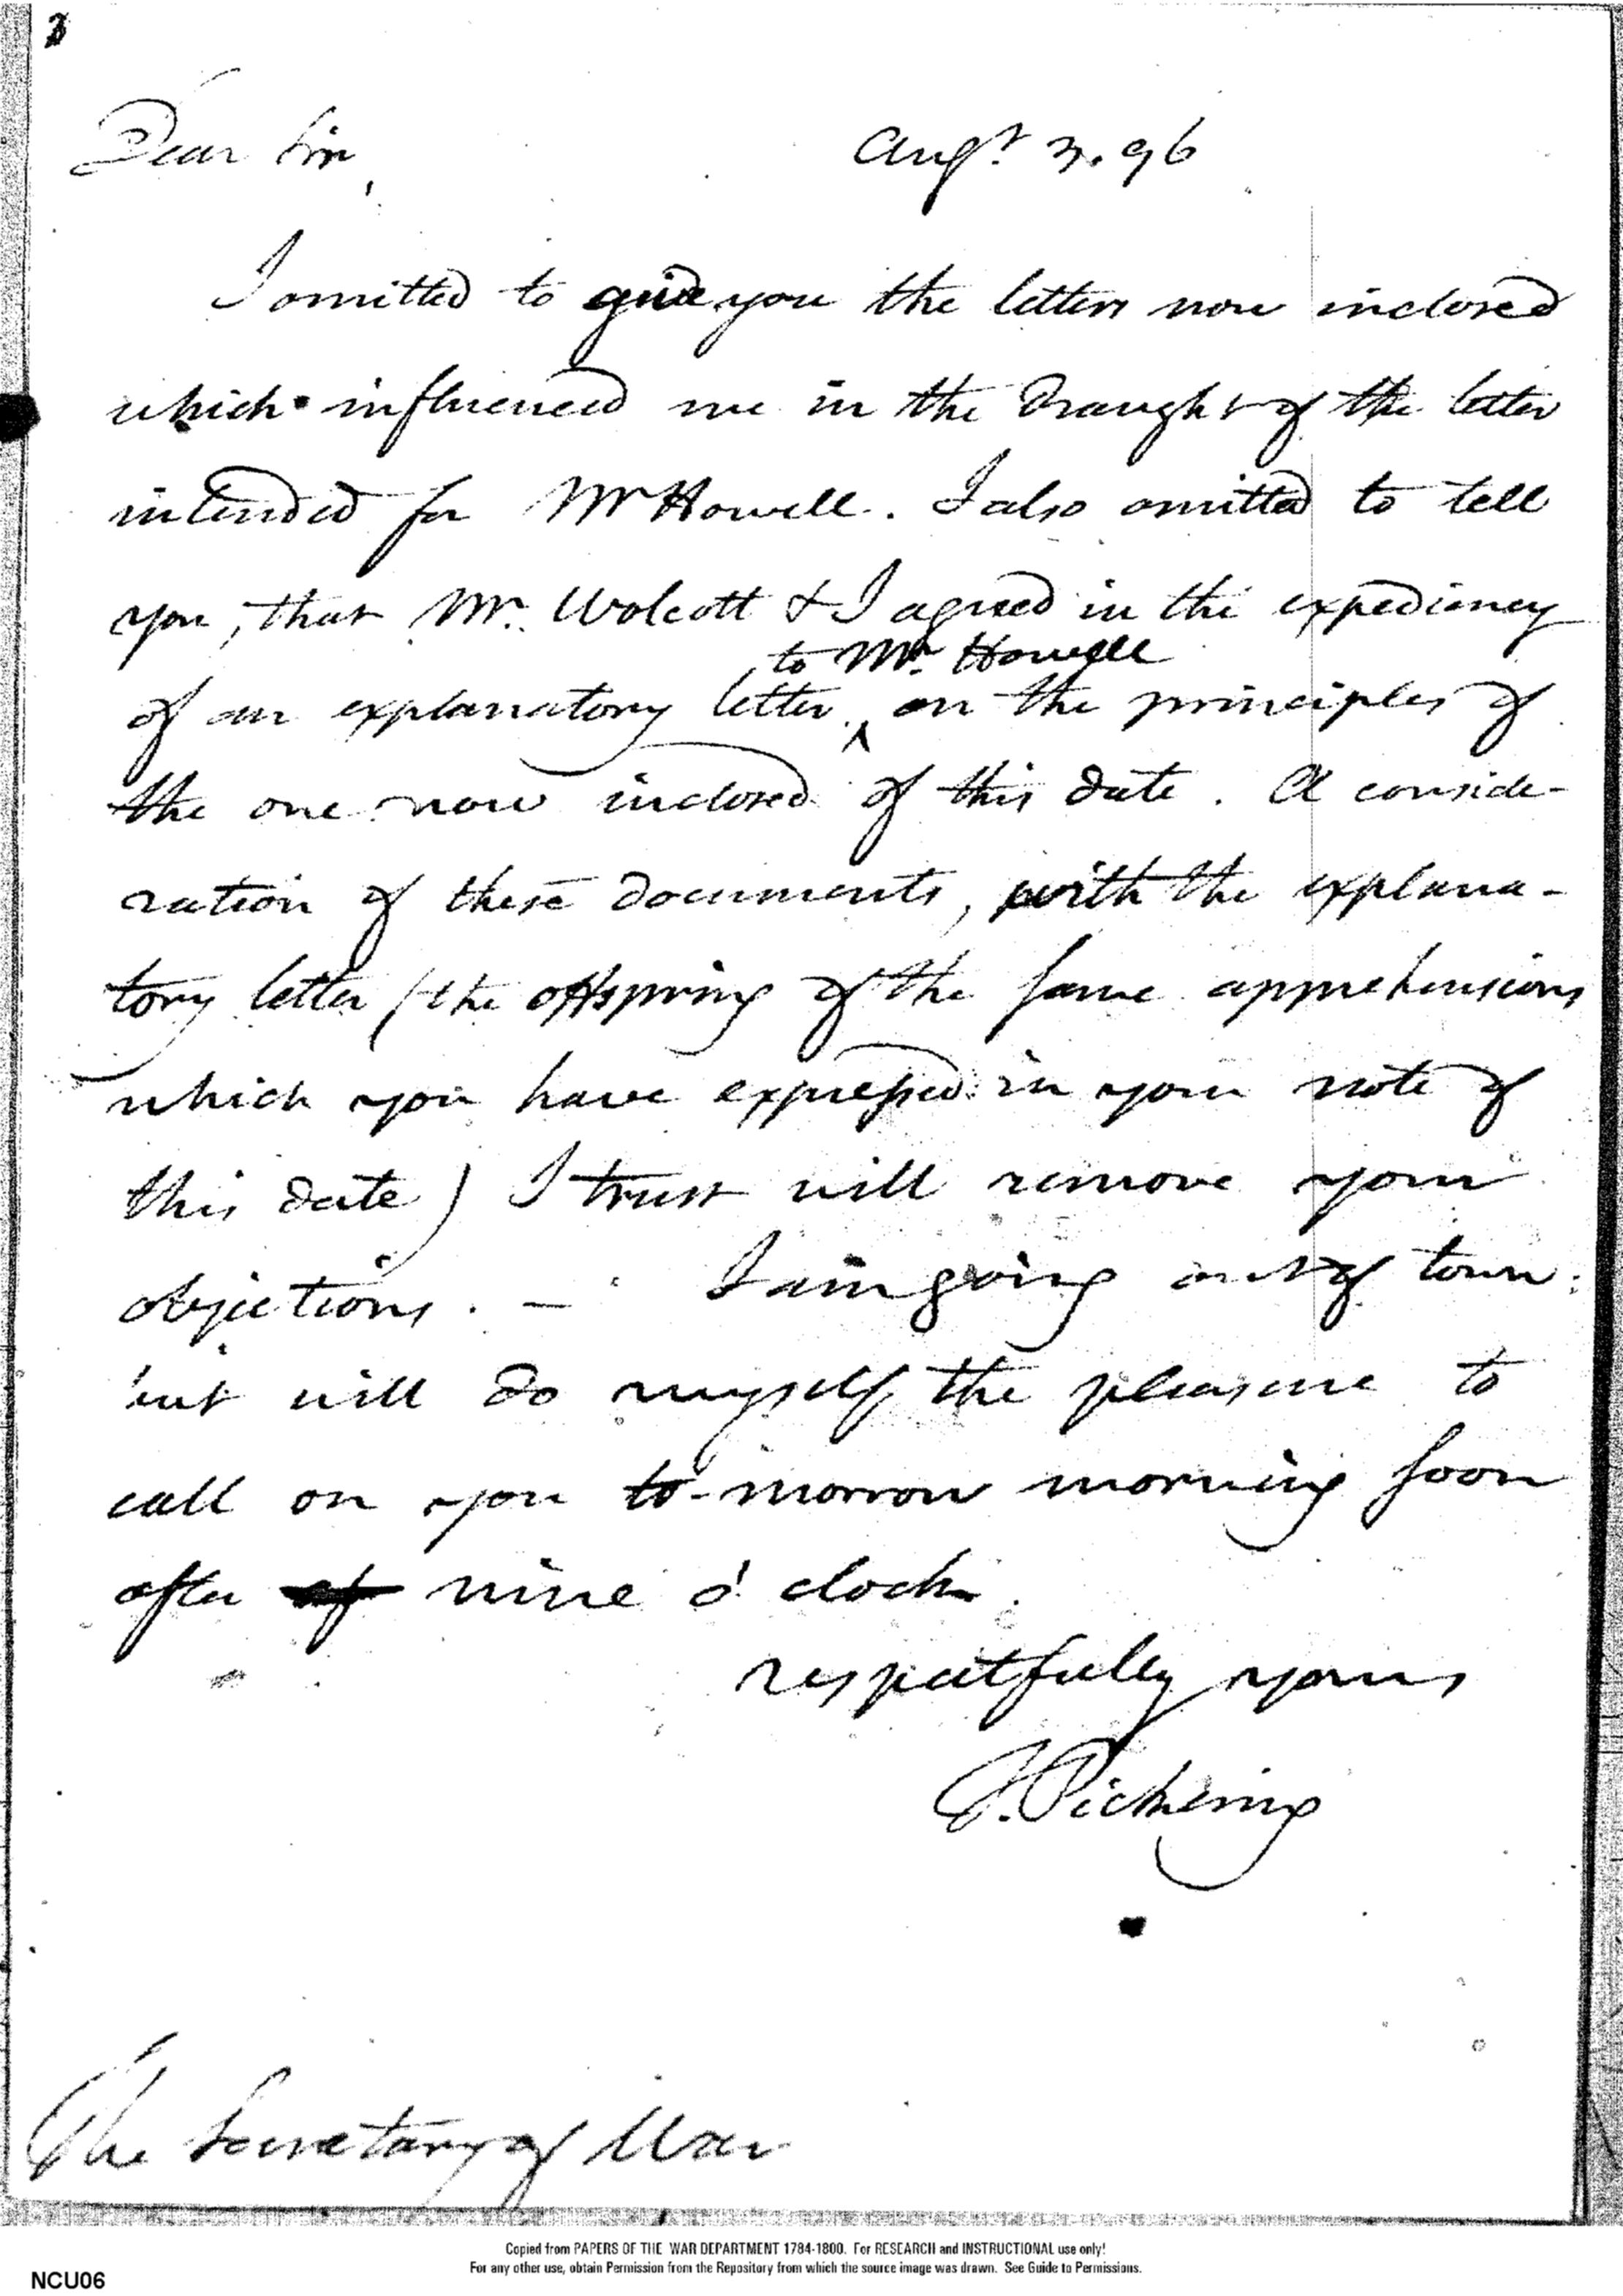 3
Dear Sir, Augt. 3. 96
I omitted to give you the letters now inclosed
which influenced me in the draught of the letter
intended for Mr Howell. I also omitted to tell
you, that Mr. Wolcott & I agreed in the expediency
to Mr. Howell
of an explanatory letter ^ on the principles of
the one now inclosed of this date. A conside-
ration of these documents, with the explana-
tory letter (the offspring of the same apprehensions
which you have expressed in your note of
this date) I trust will remove your
objections. — I am going out of town:
but will do myself the pleasure to
call on you to-morrow morning soon
after of nine o'clock.
respectfully yours
T. Pickering
The Secretary of War
Copied from PAPERS OF THE WAR DEPARTMENT 1784-1800. For RESEARCH and INSTRUCTIONAL use only!
For any other use, obtain Permission from the Repository from which the source image was drawn. See Guide to Permissions.
NCU06